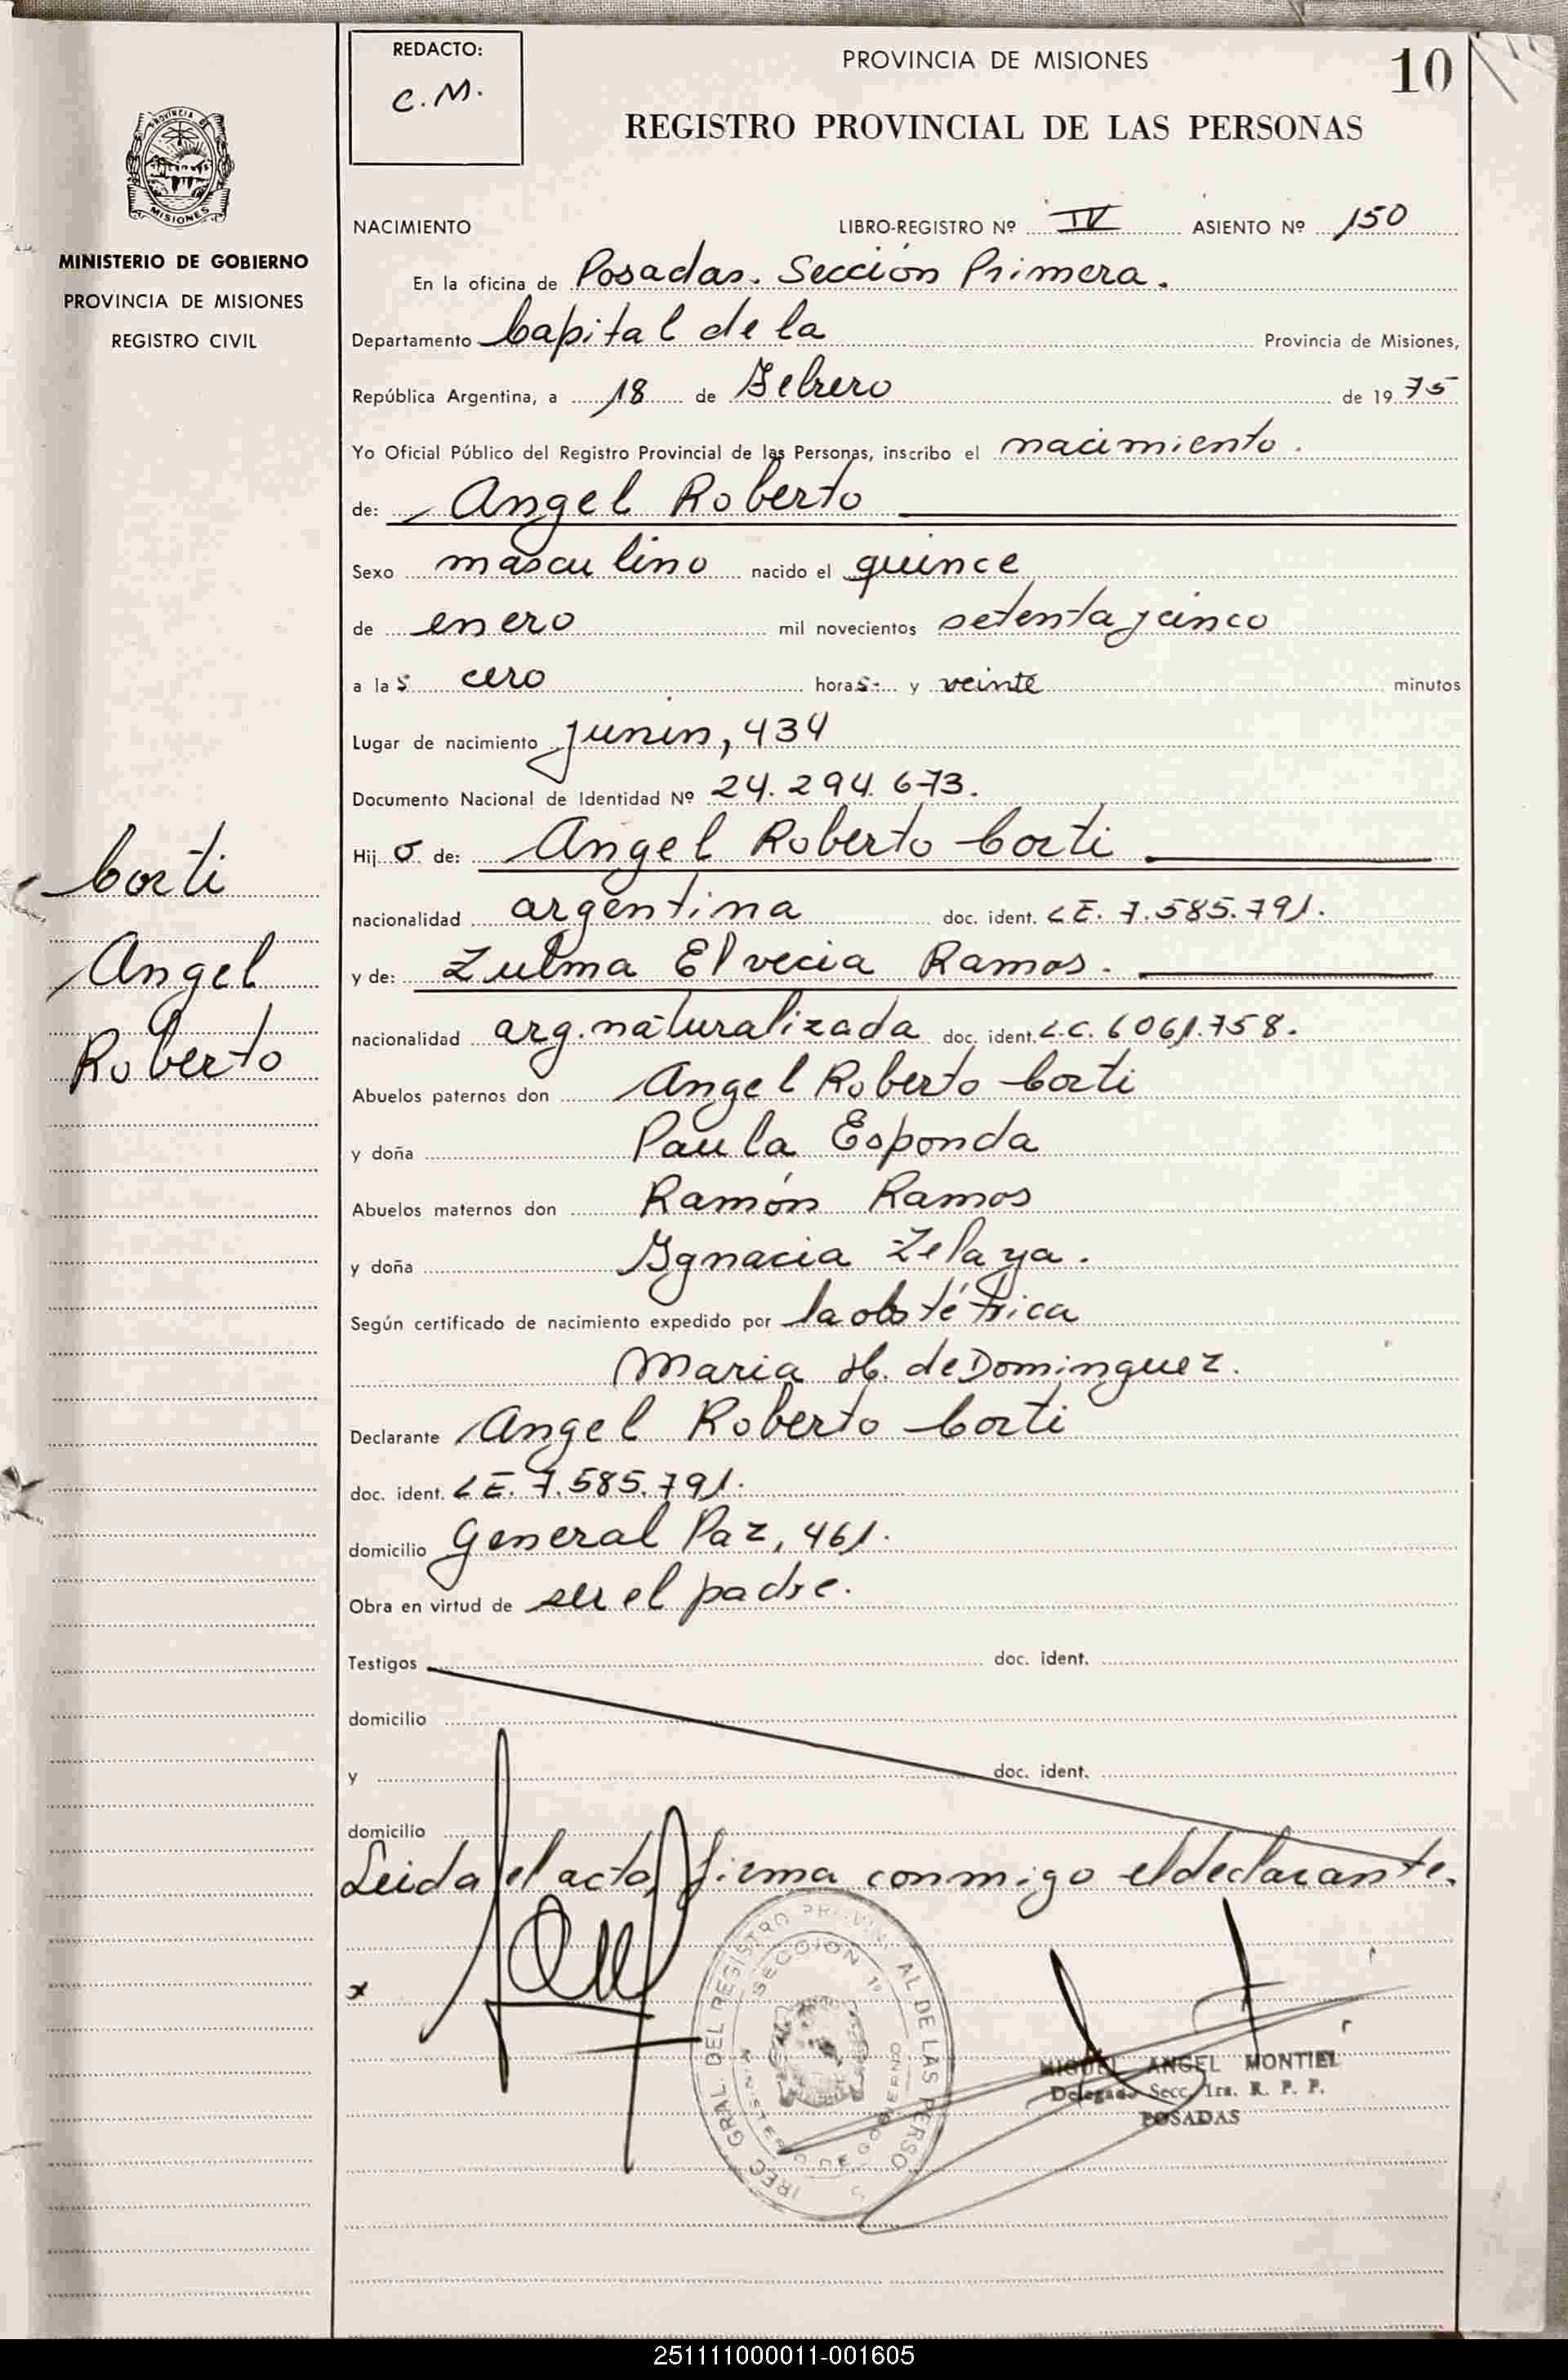 REDACTO:
C.M.
PROVINCIA DE MISIONES
10
REGISTRO PROVINCIAL DE LAS PERSONAS
PROVINCIA D
MISIONES
MINISTERIO DE GOBIERNO
PROVINCIA DE MISIONES
REGISTRO CIVIL
NACIMIENTO LIBRO-REGISTRO Nº IV ASIENTO Nº 150
En la oficina de Posadas. Sección Primera.
Departamento Capital de la Provincia de Misiones,
República Argentina, a 18 de Febrero de 1975
Yo Oficial Público del Registro Provincial de las Personas, inscribo el nacimiento.
de: Angel Roberto
Sexo masculino nacido el quince
de enero mil novecientos setenta y cinco
a las cero horas.- y veinte minutos
Lugar de nacimiento Junin, 434
Documento Nacional de Identidad Nº 24.294.673.
Hijo de: Angel Roberto Corti
nacionalidad argentina doc. ident. L.E. 7.585.791.
y de: Zulma Elvecia Ramos.
nacionalidad arg. naturalizada doc. ident. L.C. 6061.758.
Abuelos paternos don Angel Roberto Corti
y doña Paula Esponda
Abuelos maternos don Ramón Ramos
y doña Ignacia Zelaya.
Según certificado de nacimiento expedido por la obstétrica
Maria H. de Dominguez.
Declarante Angel Roberto Corti
doc. ident. L.E. 7.585.791.
domicilio General Paz, 461.
Obra en virtud de ser el padre.
Testigos doc. ident.
domicilio
y doc. ident.
domicilio
Leida el acta, firma conmigo el declarante.
Corti
Angel
Roberto
x
DIREC. GRAL. DEL REGISTRO PROVINCIAL DE LAS PERSO
SECCION 1º
MINISTERIO DE GOBIERNO
MIGUEL ANGEL MONTIEL
Delegado Secc. 1ra. R. P. P.
POSADAS
251111000011-001605